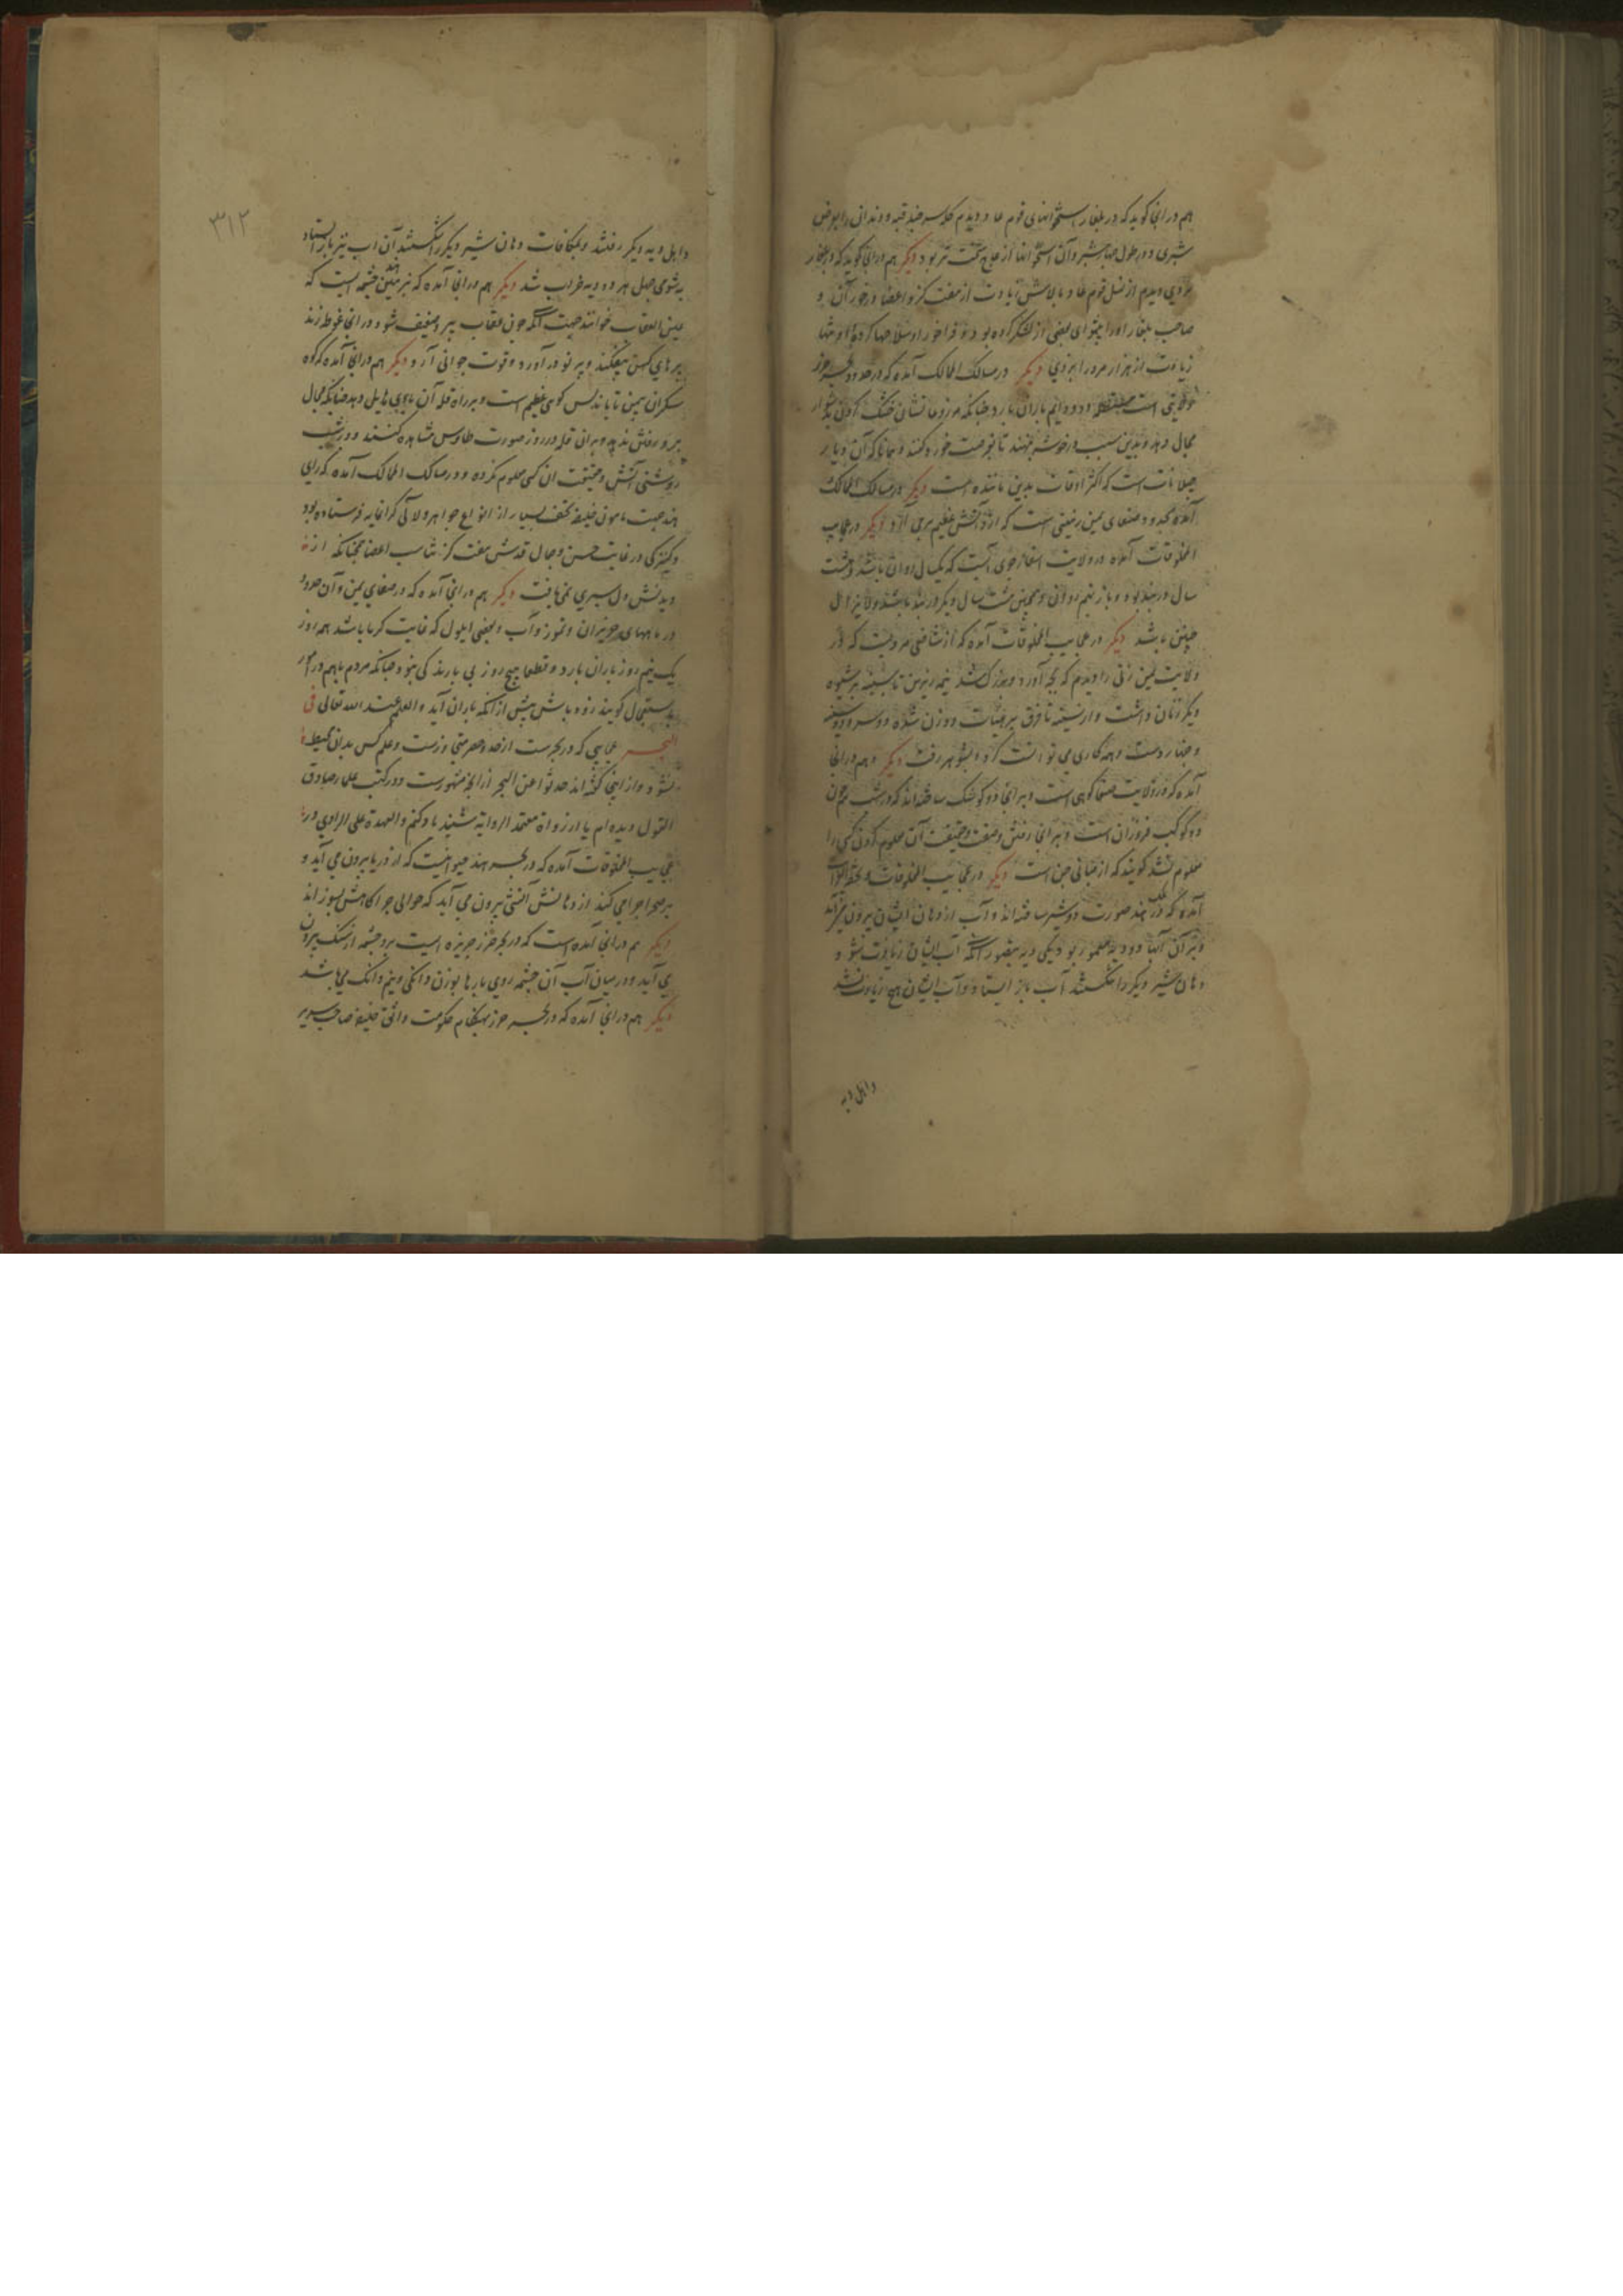 هم در انجا کوید که در بلغار استخوانهای قوم عاد دیدم کله سر چند قبه و دندانی را بعرض
شبری و در طول چهار شبر و آن استخوانها از عاج سخت تر بود دیکر هم در انجا کوید که در بلغار
مردی دیدم از نسل قوم عاد بالاش زیادت از هفت کز و اعضا در خور آن و
صاحب بلغار او را پیشوای بعضی از لشکر کرده بود و فراخور او سلاحها کرده او تنها
زیادت از هزار مرد را بزدی دیکر در مسالک الممالک آمده که در حدود بحر خزر
ولایتی است و دایم باران بارد چنانکه مزروعاتشان خشک کردن
مجال دهد و بدین سبب در خوشه بنهند تا بوقت خورد کنند و همانا که آن دیار
جیلانات است که اکثر اوقات بدین مانده است دیکر در مسالک الممالک
آمده بحدود صنعای یمن زمینی است که از او آتش عظیم بر می آید دیکر در عجایب
المخلوقات آمده در ولایت اسفار جوی آبست که یکسال روان باشد و هشت
سال در بند بود و باز نهم روانی و همچنین هشت سال دیکر در بند باشد و لایزال
چنین باشد دیکر در عجایب المخلوقات آمده که از شافعی مرویست که در
ولایت یمن زنی را دیدم که بچه آورد و بزرک شد نیمه زیرین تا سینه بر شیوه
دیکر زنان داشت و از سینه تا فرق بر هیات دو زن شده دو سر و دو سینه
و چهار دست و همه کاری می توانست کرد و بشوهر رفت دیکر و هم در انجا
آمده که در ولایت صنعا کوهی است و بر آنجا دو کوشک ساخته اند که در شب چون
دو کوکب فروزان است و بر انجا رفتن و صفت و حقیقت آن معلوم کردن کسی را
معلوم نشد کویند که از مبانی جن است دیکر در عجایب المخلوقات و تحفة الغرایب
آمده که در ملک هند صورت دو شیر ساخته اند و آب از دهان ایشان بیرون می آمد
و بر آن آبها دو دیه معمور بود یکی دیه بتصور آنکه آب ایشان زیادت شود
دهان شیر دیکر را شکستند آب باز ایستاد و آب ایشان هیچ زیادت نشد
و اهل دیه
۳۱۲
و اهل دیه دیکر رفتند و بمکافات دهان شیر دیکر را شکستند آن آب نیز باز ایستاد
به شومی جهل هر دو دیه خراب شد دیکر هم در انجا آمده که بزمین هند چشمه ایست که
عین العقاب خوانند جهت آنکه چون عقاب پیر و ضعیف شود در انجا غوطه زند
پرهای کهن بیفکند و پر نو در آورد و قوت جوانی آرد دیکر هم در انجا آمده که کوه
سکران بیمن تا باندلس کوهی عظیم است و بر راه قله آن بادی هایل دهد چنانکه مجال
بر و رفتن ندهد و بر ان قله در روز صورت طاوس مشاهده کنند و در شب
روشنی آتش و حقیقت ان کسی معلوم نکرده و در مسالک الممالک آمده که رای
هند جهت مامون خلیفه تحف بسیار از انواع جواهر و لآلی کرانمایه فرستاده بود
و کنیزکی در غایت حسن و جمال قدش هفت کز متناسب اعضا چنانکه از
دیدنش دل سیری نمی یافت دیکر هم در انجا آمده که در صنعای یمن و آن حدود
در ماههای حزیران و تموز و آب و بعضی ایلول که غایت کرما باشد همه روز
یک نیم روز باران بارد و قطعا هیچ روز بی بارندکی نبود چنانکه مردم باهم در امور
باستعجال کویند زود باش پیش از آنکه باران آید و العلم عند الله تعالی فی
البحر عجایبی که در بحرست از حد و حصر متجاوزست و علم کس بدان محیط
نشود و از اینجا کفته اند حدثوا عن البحر از آنچه مشهورست و در کتب علماء صادق
القول دیده ام یا از رواة معتمد الروایة شنیده یاد کنم و العهدة علی الراوی در
عجایب المخلوقات آمده که در بحر هند حیوانیست که از دریا بیرون می آید و
بر صحرا چرا می کند از دهانش آتش بیرون می آید که حوالی چراکاهش بسوزاند
دیکر هم در انجا آمده است که در بحر خزر جزیره ایست برو چشمه از سنک بیرون
می آید و در میان آب آن چشمه روی پارها بوزن دانکی و نیم دانک می باشد
دیکر هم در انجا آمده که در بحر خزر بهنکام حکومت واثق خلیفه صاحب سریر